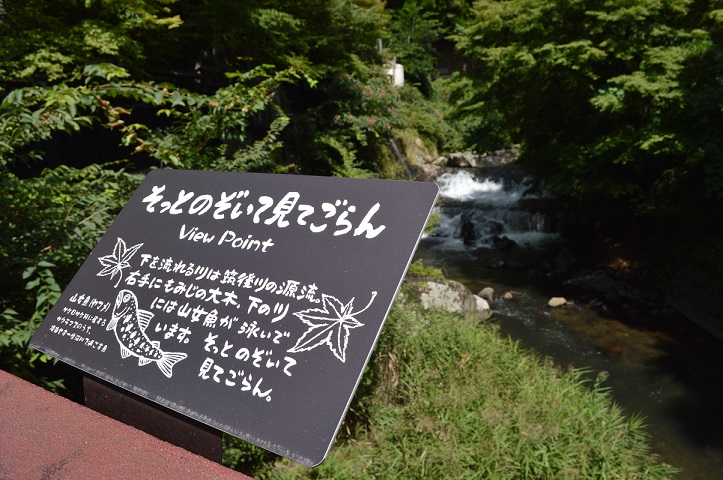 そっとのぞいて見てごらん
View Point
下を流れる川は筑後川の源流。
右手にもみじの大木、下の川
には山女魚が泳いで
います。そっとのぞいて
見てごらん。
山女魚(ヤマメ)